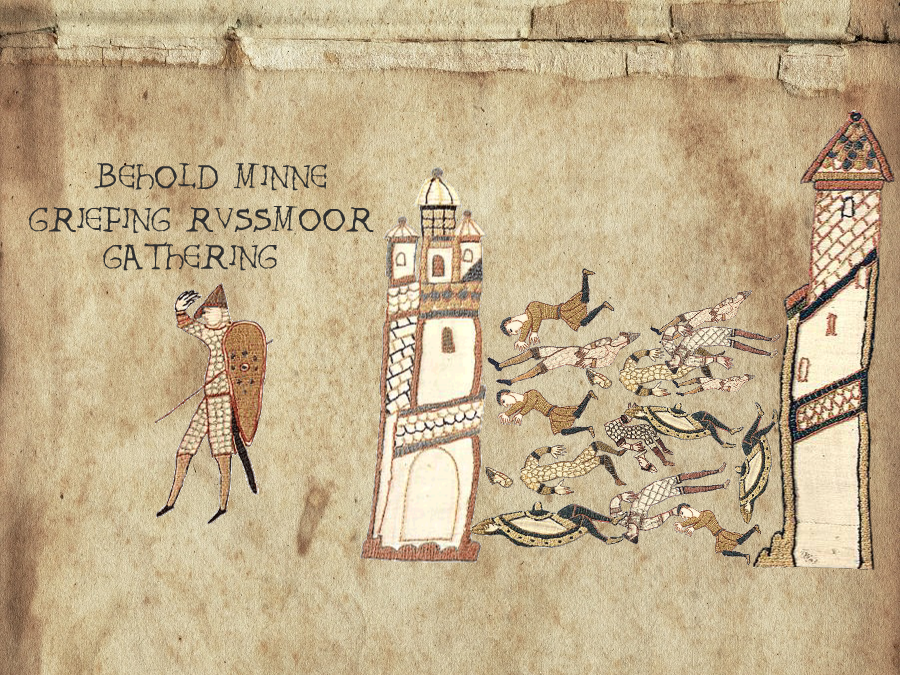 BEHOLD MINNE
GRIEFING RVSSMOOR
GATHERING